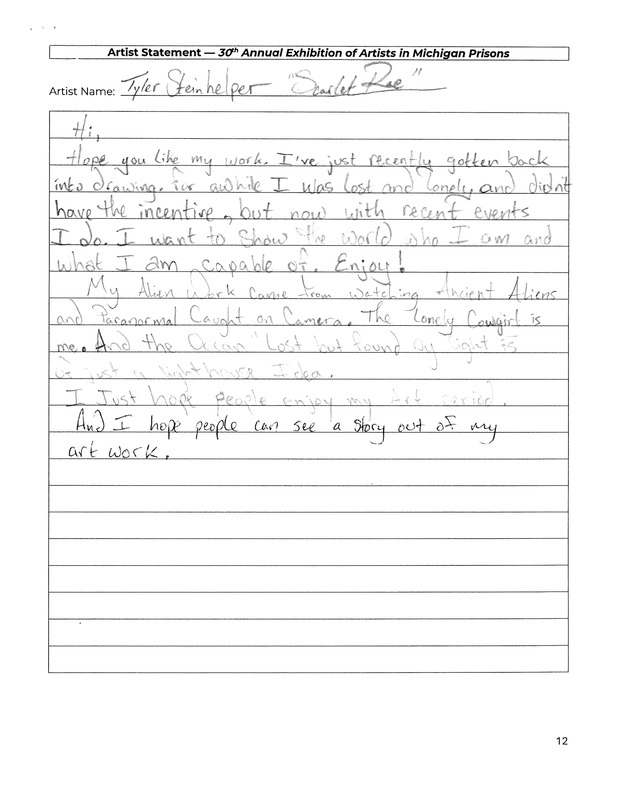 Artist Statement — 30th Annual Exhibition of Artists in Michigan Prisons
Artist Name: Tyler Steinhelper "Scarlet Rae"
Hi,
Hope you like my work. I've just recently gotten back
into drawing. For awhile I was lost and lonely and didn't
have the incentive, but now with recent events
I do. I want to show the world who I am and
what I am capable of. Enjoy!
My Alien Work came from watching Ancient Aliens
and Paranormal Caught on Camera. The Lonely Cowgirl is
me. And the Ocean "Lost but found by light is
of just a lighthouse Idea.
I Just hope people enjoy my Art period.
And I hope people can see a story out of my
art work.
12